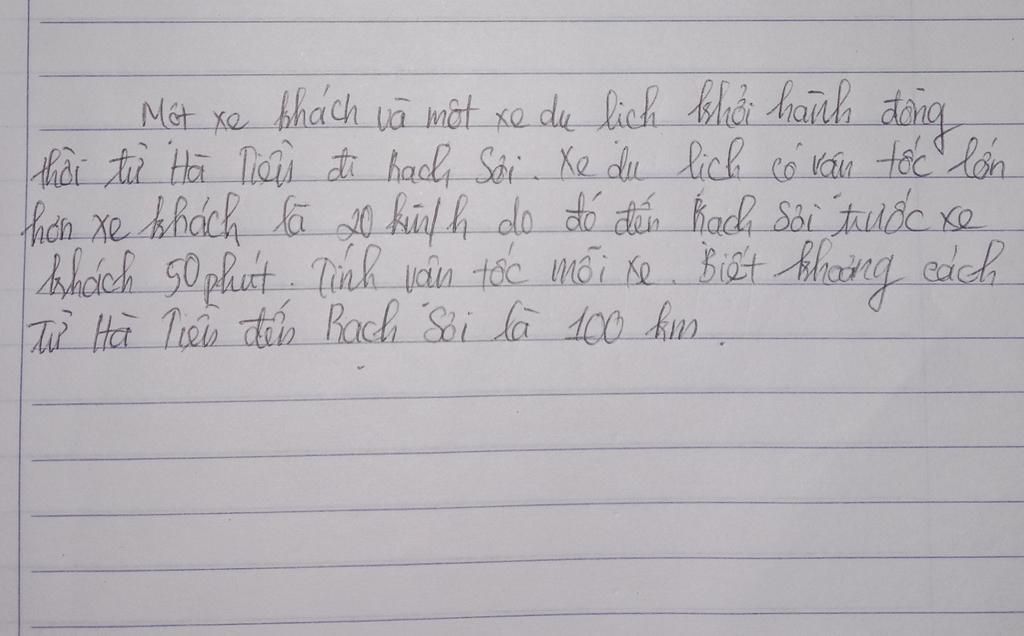 Một xe khách và một xe du lich khởi hành đồng
thời từ Hà Tiên đi Rạch Sỏi. Xe du lịch có vân tốc lớn
hơn xe khách là 20 km/h do đó đến Rạch Sỏi trước xe
khách 50 phút. Tính vân tốc mỗi xe. Biết khoảng cách
Từ Hà Tiên đến Rạch Sỏi là 100 km.